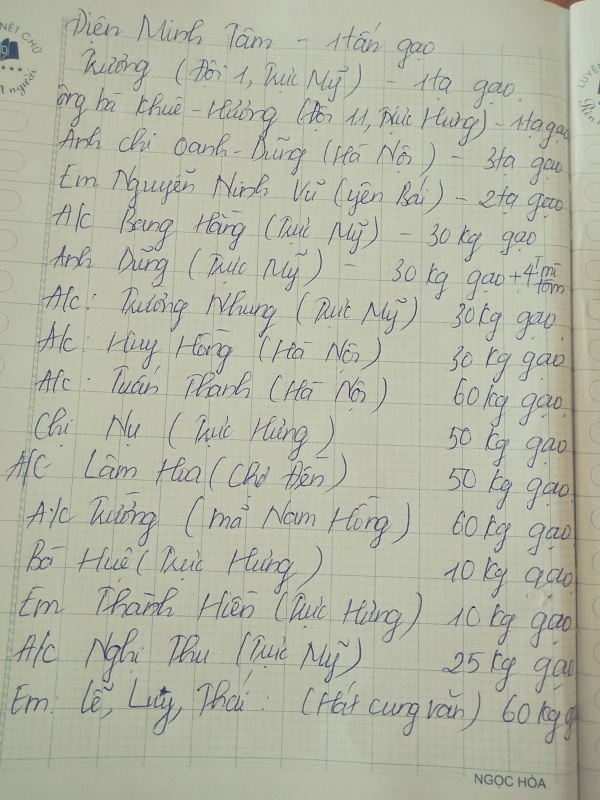 Điện Minh Tâm - 1 tấn gạo
Trưởng (Đội 1, Trực Mỹ) - 1 tạ gạo.
Ông bà Khuê - Hương (Đội 11, Trực Hưng) - 1 tạ gạo
Anh chị Oanh - Dũng (Hà Nội) - 3 tạ gạo
Em Nguyễn Ninh Vũ (Yên Bái) - 2 tạ gạo
A/c Bang Hằng (Trực Mỹ) - 30 kg gạo
Anh Dũng (Trực Mỹ) - 30 kg gạo + 4 T mì tôm
A/c: Trương Nhung (Trực Mỹ) 30 kg gạo
A/c: Huy Hồng (Hà Nội) 30 kg gạo
A/c: Tuấn Thanh (Hà Nội) 60 kg gạo
Chị Nụ (Trực Hưng) 50 kg gạo
A/C Lâm Hua (Chợ Đền) 50 kg gạo
A/c Trường (mả Nam Hồng) 60 kg gạo
Bá Huê (Trực Hưng) 10 kg gạo
Em Thành Hiền (Trực Hưng) 10 kg gạo
A/c Nghị Thu (Trực Mỹ) 25 kg gạo
Em: Lễ, Luy, Thái: (Hát cung văn) 60 kg g
NGỌC HÒA